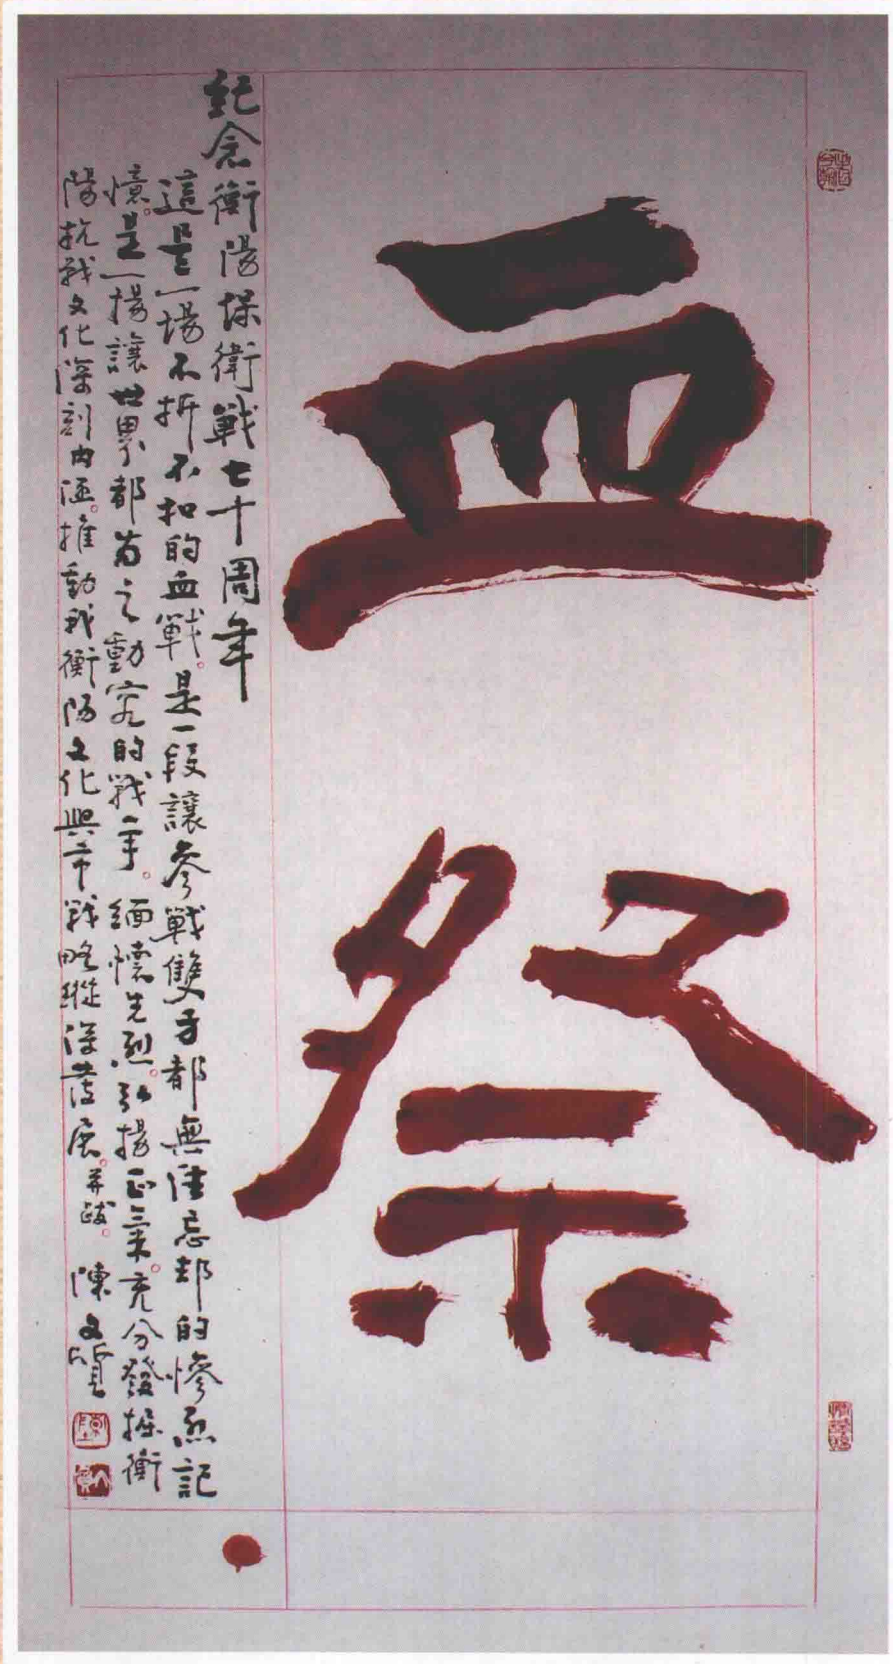 血祭
紀念衡陽保衛戰七十周年
這是一場不折不扣的血戰。是一段讓參戰雙方都無法忘却的慘烈記
憶。是一場讓世界都為之動容的戰争。緬懷先烈。弘揚正氣。充分發掘衡
陽抗戰文化深刻内涵。推動我衡陽文化興市戰略縱深發展。并跋。 陳文賢